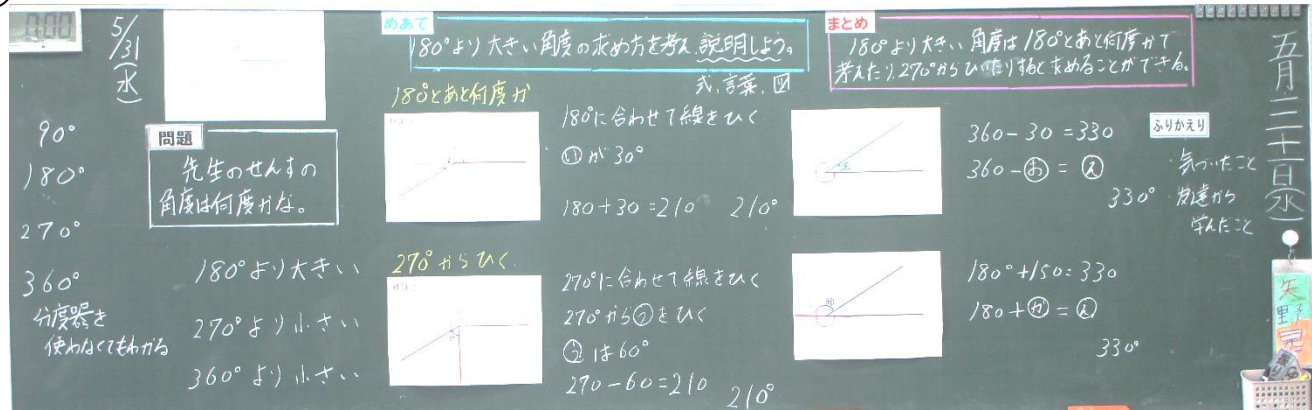 5/31(水)
90°
180°
270°
360°
分度器を
使わなくてもわかる
問題
先生のせんすの
角度は何度かな。
180°より大きい
270°より小さい
360°より小さい
めあて
180°より大きい角度の求め方を考え、説明しよう。
式、言葉、図
180°とあと何度か
180°に合わせて線をひく
㋑が30°
180+30=210 210°
270°からひく
270°に合わせて線をひく
270°から㋒をひく
㋒は60°
270-60=210 210°
まとめ
180°より大きい角度は180°とあと何度かで
考えたり、270°からひいたりすると求めることができる。
360-30=330
360-㋔=㋓
330°
180°+150=330
180+㋕=㋓
330°
ふりかえり
・気づいたこと
・友達から
学んだこと
五月三十一日(水)